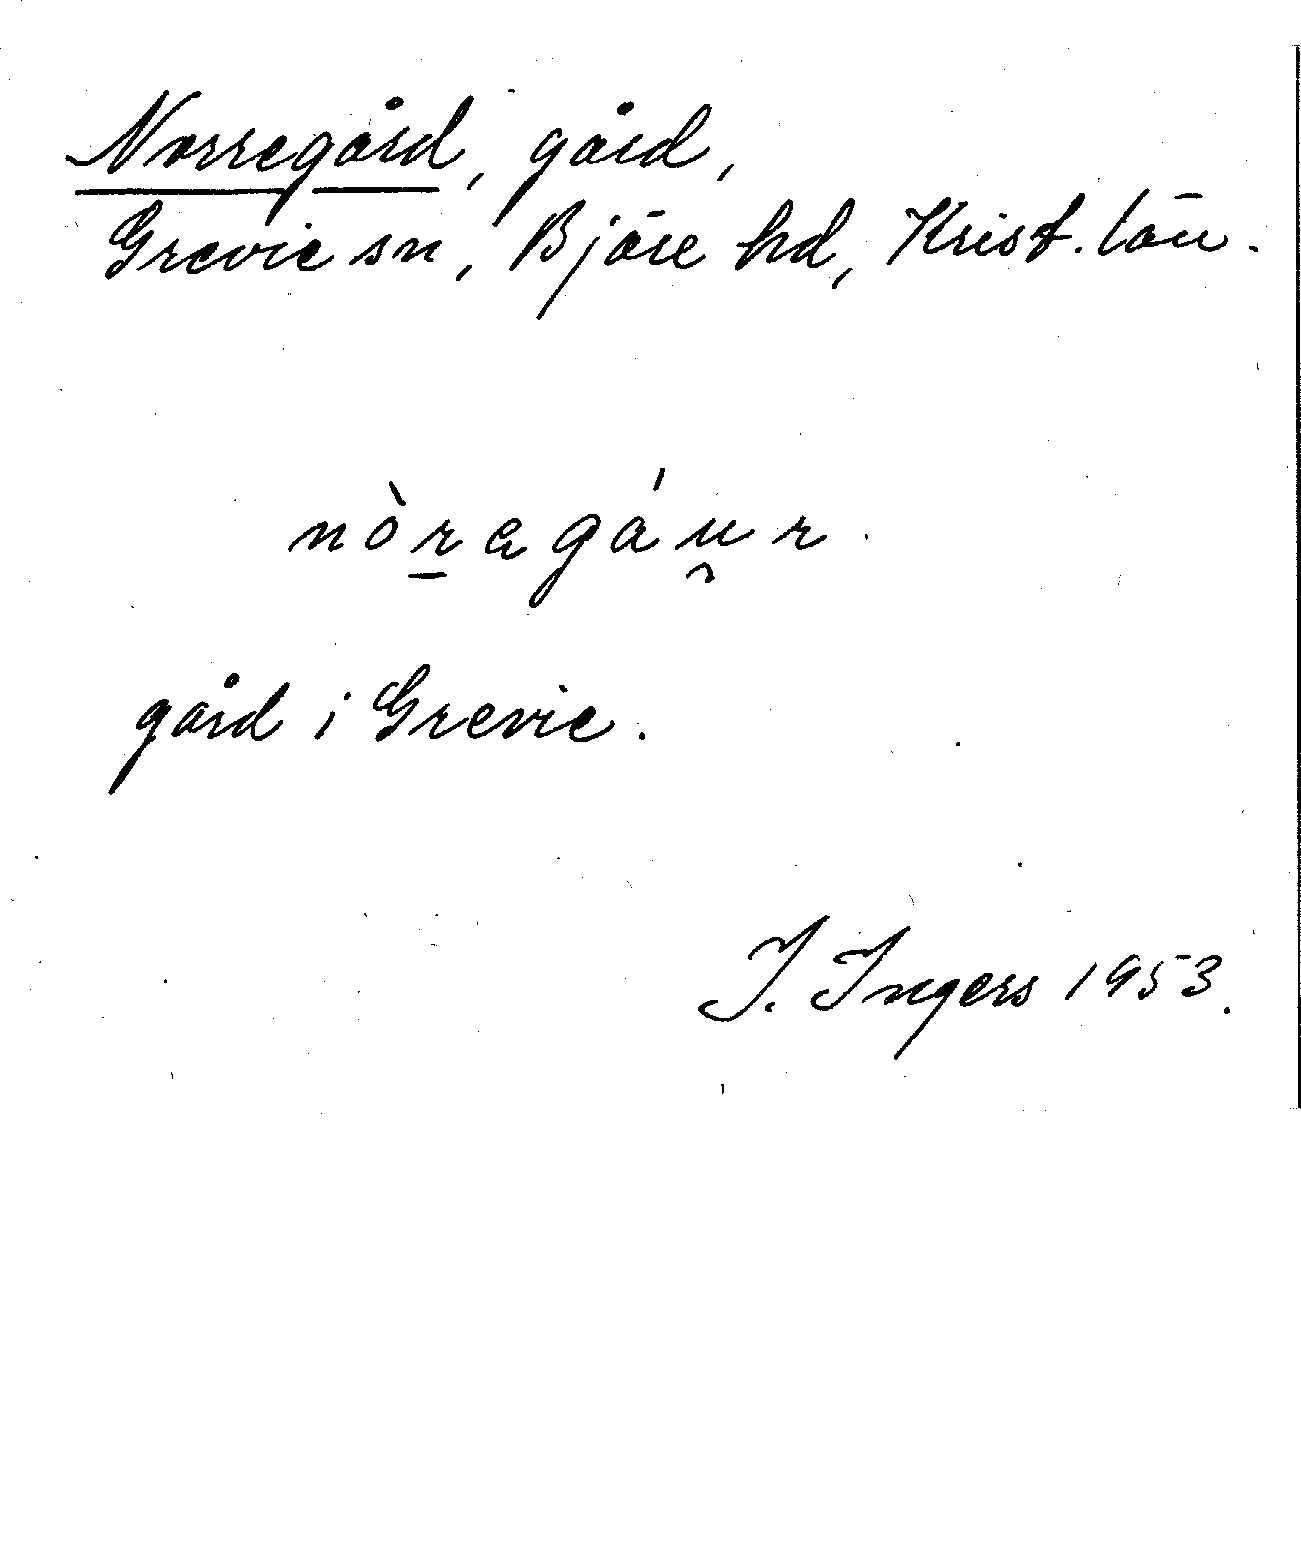 Norregård, gård,
Grevie sn, Bjäre hd, Krist. län.
nòr̲agáu̯r.
gård i Grevie.
I. Ingers 1953.